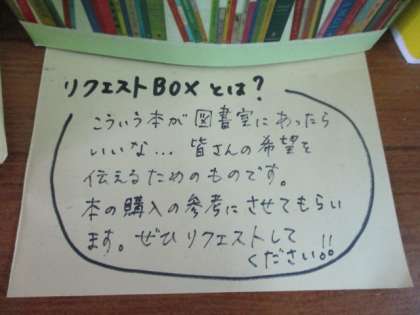 リクエストBOXとは？
こういう本が図書室にあったら
いいな... 皆さんの希望を
伝えるためのものです。
本の購入の参考にさせてもらい
ます。ぜひリクエストして
ください!!